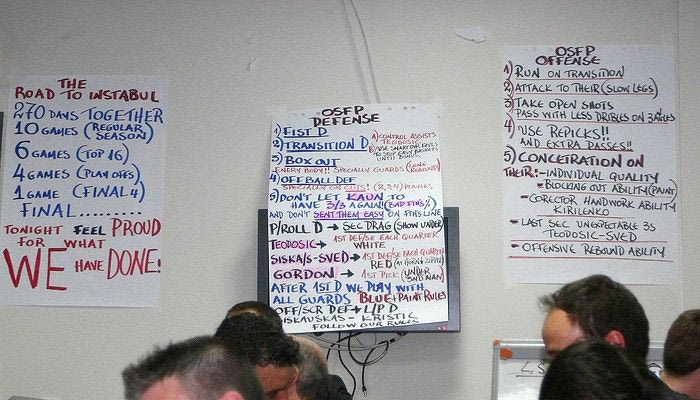 THE
ROAD TO INSTABUL
270 DAYS TOGETHER
10 GAMES (REGULAR SEASON)
6 GAMES (TOP 16)
4 GAMES (PLAY OFFS)
1 GAME (FINAL 4)
FINAL.........
TONIGHT FEEL PROUD
FOR WHAT
WE HAVE DONE!
OSFP
DEFENSE
1) FIST D
2) TRANSITION D
A) CONTROL ASSISTS TEODOSIC
3) BOX OUT
EVERY BODY!! SPECIALLY GUARDS (LONG REBOUNDS)
4) OFF BALL DEF
SPECIALLY ON CUTS! (2,3,4) PLAYERS
5) DON'T LET KAUN TO
HAVE 3/3 AGAIN!
AND DON'T SENT THEM EASY ON FTHS LINE
P/ROLL D → SEC DRAG (SHOW UNDER)
TEODOSIC → 1ST DEF/SE EACH QUARTER
WHITE
SISKA/S-SVED → 1ST DEF/SE EACH QUARTER
RED
GORDON → 1ST PICK (UNDER 2ND MAN)
AFTER 1ST D WE PLAY WITH
ALL GUARDS BLUE + PAINT RULES
OFF/SCR DEF + L/P D
SISKAUSKAS - KRISTIC
FOLLOW OUR RULES
OSFP
OFFENSE
1) RUN ON TRANSITION
2) ATTACK TO THEIR (SLOW LEGS)
3) TAKE OPEN SHOTS
PASS WITH LESS DRIBLES ON 3ANGLES
4) USE REPICKS!!
AND EXTRA PASSES!!
5) CONCETRATION ON
THEIR:-INDIVIDUAL QUALITY
-BLOCKING OUT ABILITY (PAINT)
-CORECTOR HANDWORK ABILITY
KIRILENKO
-LAST SEC UNEXPECTABLE 3S
TEODOSIC-SVED
-OFFENSIVE REBOUND ABILITY